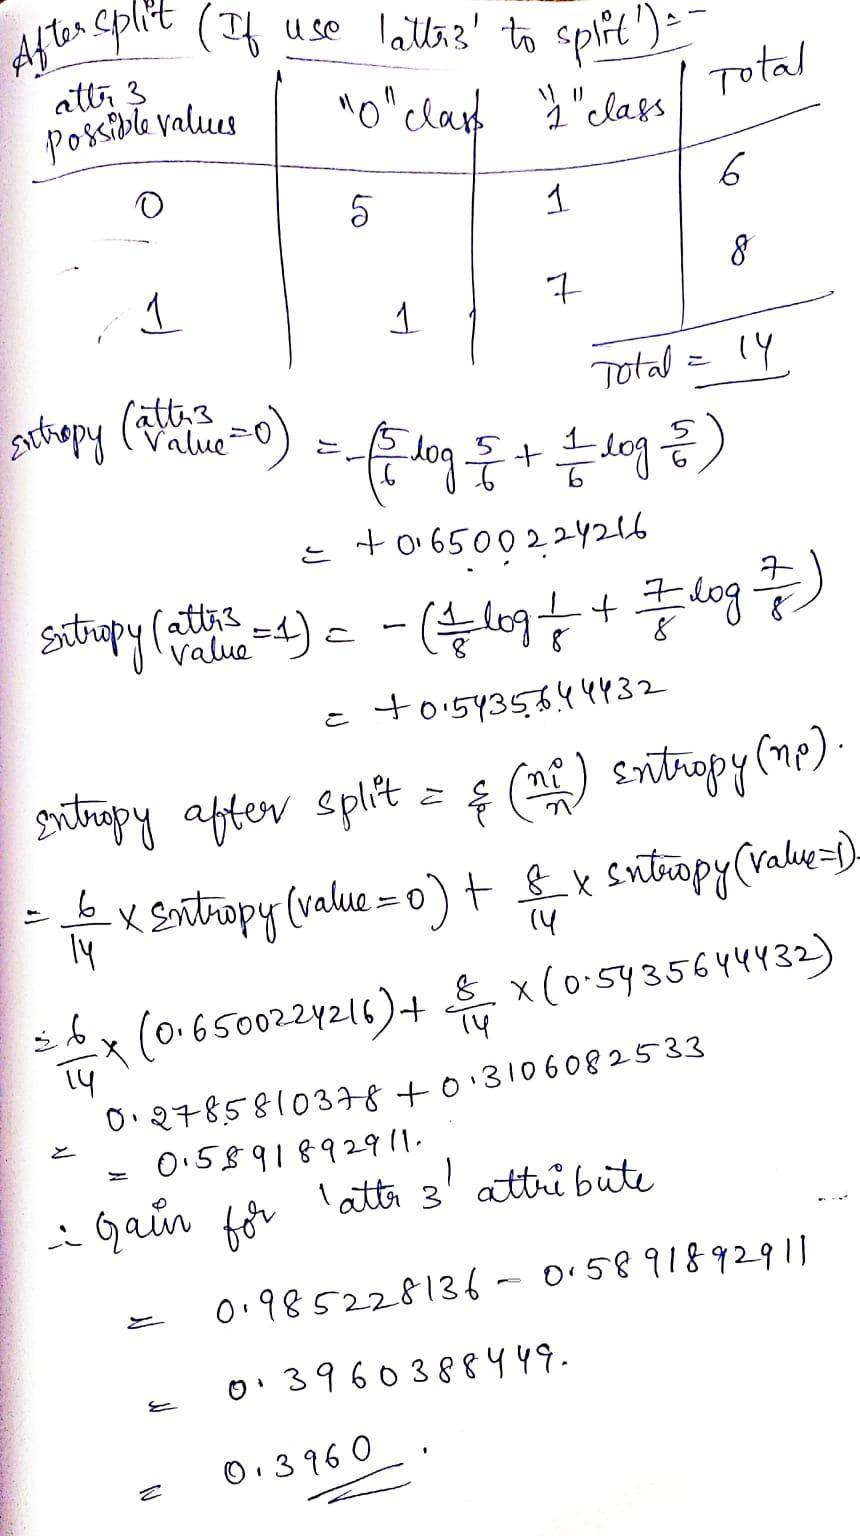 After split (If use 'attr3' to split'):-
attr 3 possible values "0" class "1" class Total
0 5 1 6
1 1 7 8
Total = 14
Entropy (attr3 value=0) = -(5/6 log 5/6 + 1/6 log 5/6)
= +0.6500224216
Entropy (attr3 value=1) = -(1/8 log 1/8 + 7/8 log 7/8)
= +0.5435644432
Entropy after split = Σi (ni/n) Entropy (ni).
= 6/14 x Entropy (value=0) + 8/14 x Entropy (value=1).
= 6/14 x (0.6500224216) + 8/14 x (0.5435644432)
= 0.2785810378 + 0.3106082533
= 0.5891892911.
∴ Gain for 'attr 3' attribute
= 0.985228136 - 0.5891892911
= 0.3960388449.
= 0.3960.